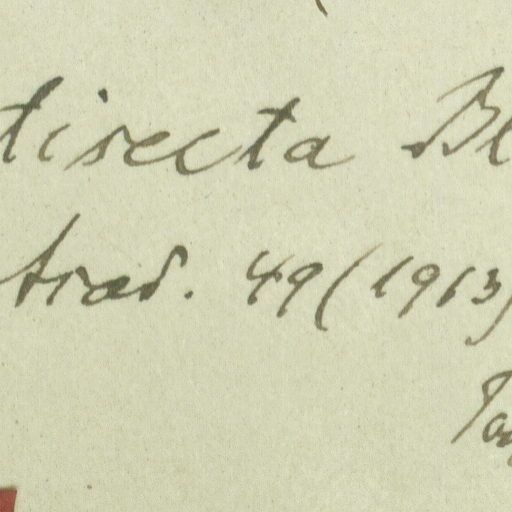 tisecta Bl
trad. 49 (1913)